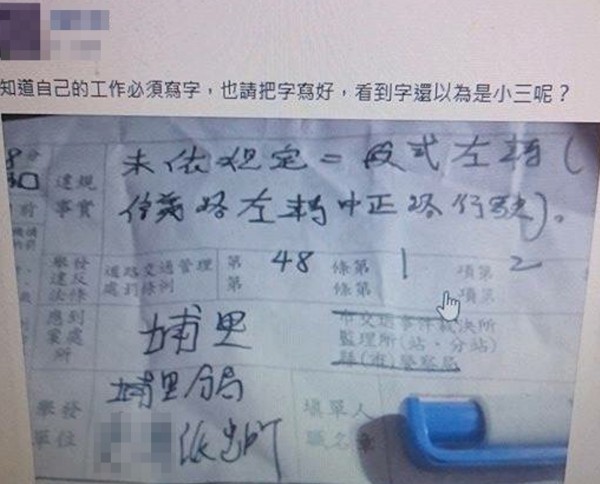 知道自己的工作必須寫字，也請把字寫好，看到字還以為是小三呢？
8分
30
違規事實
未依規定二段式左轉(
信義路左轉中正路行駛)。
舉發違反法條
道路交通管理處罰條例
第 48 條第 1 項第 2
第 條第 項第
應到案處所
埔里
市交通事件裁決所
監理所(站、分站)
縣(市)警察局
舉發單位
埔里分局
派出所
填單人職名章